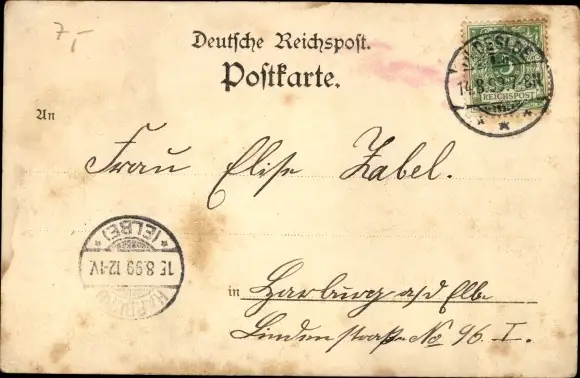 7,-
Deutsche Reichspost.
Postkarte.
5
REICHSPOST
14.8.99
An
Frau Elise Zabel.
(ELBE)
15.8.99 12-1V.
in Harburg a/d Elbe
Lindenstraße No 46. I.